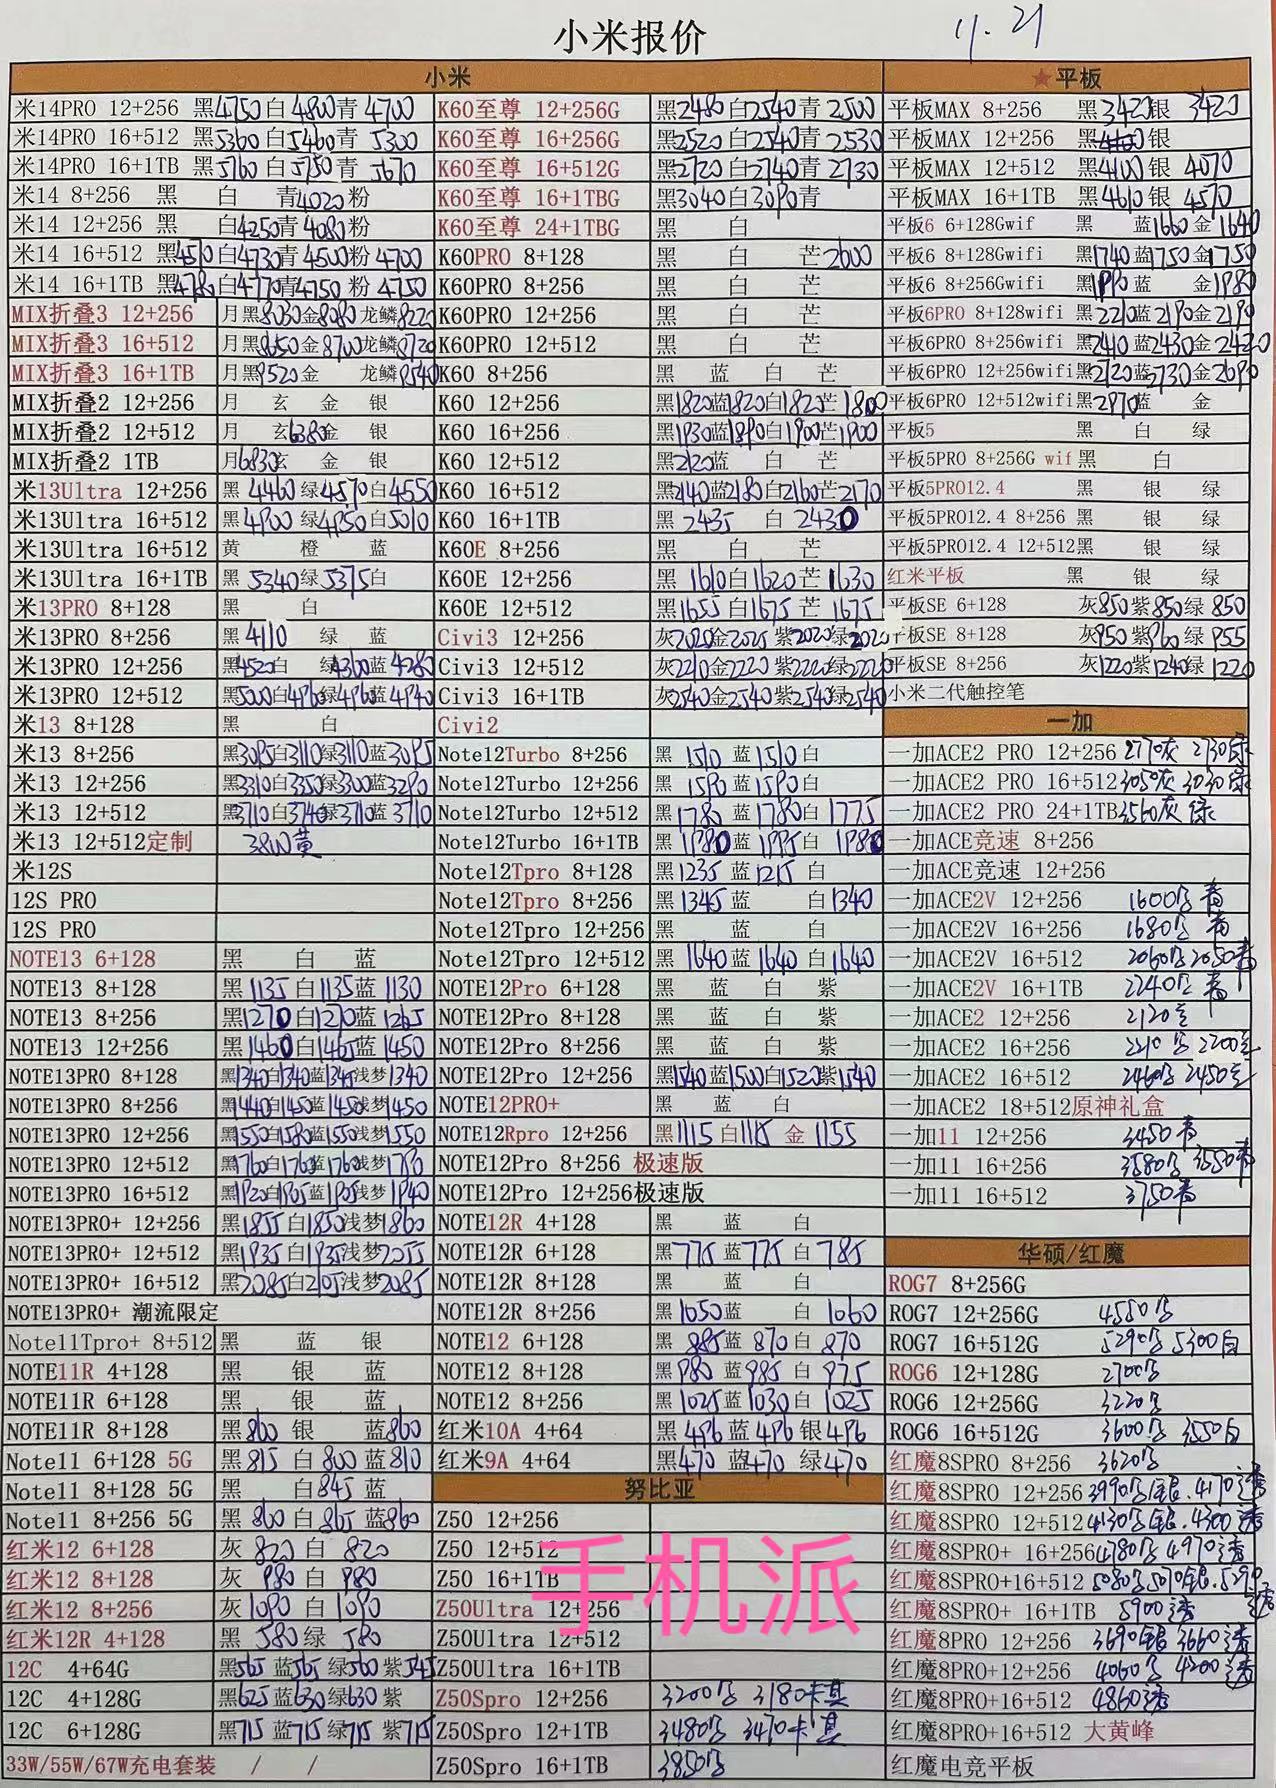 小米报价
11.21
小米
米14PRO 12+256 黑4750白4800青4700
米14PRO 16+512 黑5360白5460青5300
米14PRO 16+1TB 黑5760白5750青5670
米14 8+256 黑 白 青4020粉
米14 12+256 黑 白4250青4080粉
米14 16+512 黑4510白4730青4500粉4700
米14 16+1TB 黑4780白4770青4750粉4750
MIX折叠3 12+256 月黑8030金8080龙鳞8220
MIX折叠3 16+512 月黑8650金8700龙鳞8720
MIX折叠3 16+1TB 月黑9520金 龙鳞9540
MIX折叠2 12+256 月 玄 金 银
MIX折叠2 12+512 月 玄6380金 银
MIX折叠2 1TB 月6830玄 金 银
米13Ultra 12+256 黑4460绿4570白4550
米13Ultra 16+512 黑4900绿4950白5010
米13Ultra 16+512 黄 橙 蓝
米13Ultra 16+1TB 黑5340绿5375白
米13PRO 8+128 黑 白
米13PRO 8+256 黑4110 绿 蓝
米13PRO 12+256 黑4520白 绿4360蓝4280
米13PRO 12+512 黑5000白4960绿4960蓝4940
米13 8+128 黑 白
米13 8+256 黑3095白3110绿3110蓝3095
米13 12+256 黑3310白3350绿3300蓝3290
米13 12+512 黑3710白3740绿3710蓝3710
米13 12+512定制 3800黄
米12S
12S PRO
12S PRO
NOTE13 6+128 黑 白 蓝
NOTE13 8+128 黑1135白1135蓝1130
NOTE13 8+256 黑1270白1270蓝1265
NOTE13 12+256 黑1460白1465蓝1450
NOTE13PRO 8+128 黑1340白1340蓝1345浅梦1340
NOTE13PRO 8+256 黑1440白1450蓝1450浅梦1450
NOTE13PRO 12+256 黑1550白1580蓝1550浅梦1550
NOTE13PRO 12+512 黑1760白1760蓝1760浅梦1780
NOTE13PRO 16+512 黑1920白1905蓝1905浅梦1940
NOTE13PRO+ 12+256 黑1855白1850浅梦1860
NOTE13PRO+ 12+512 黑1935白1935浅梦2055
NOTE13PRO+ 16+512 黑2085白2105浅梦2085
NOTE13PRO+ 潮流限定
Note11Tpro+ 8+512 黑 蓝 银
NOTE11R 4+128 黑 银 蓝
NOTE11R 6+128 黑 银 蓝
NOTE11R 8+128 黑860 银 蓝860
Note11 6+128 5G 黑815 白800蓝810
Note11 8+128 5G 黑 白845蓝
Note11 8+256 5G 黑860白865蓝860
红米12 6+128 灰820白820
红米12 8+128 灰980白980
红米12 8+256 灰1090白1090
红米12R 4+128 黑580绿580
12C 4+64G 黑565蓝565绿560紫545
12C 4+128G 黑625蓝630绿630紫
12C 6+128G 黑715蓝715绿715紫715
33W/55W/67W充电套装 / /
K60至尊 12+256G 黑2480白2540青2500
K60至尊 16+256G 黑2520白2540青2530
K60至尊 16+512G 黑2720白2740青2730
K60至尊 16+1TBG 黑3040白3090青
K60至尊 24+1TBG 黑 白
K60PRO 8+128 黑 白 芒2600
K60PRO 8+256 黑 白 芒
K60PRO 12+256 黑 白 芒
K60PRO 12+512 黑 白 芒
K60 8+256 黑 蓝 白 芒
K60 12+256 黑1820蓝1820白1820芒1800
K60 16+256 黑1930蓝1890白1900芒1900
K60 12+512 黑2120蓝 白 芒
K60 16+512 黑2140蓝2180白2160芒2170
K60 16+1TB 黑2435 白2430
K60E 8+256 黑 白 芒
K60E 12+256 黑1610白1620芒1630
K60E 12+512 黑1655白1675芒1675
Civi3 12+256 灰2025金2025紫2020绿2020
Civi3 12+512 灰2210金2220紫2220绿2220
Civi3 16+1TB 灰2540金2540紫2540绿2540
Civi2
Note12Turbo 8+256 黑1510蓝1510白
Note12Turbo 12+256 黑1590蓝1590白
Note12Turbo 12+512 黑1780蓝1780白1775
Note12Turbo 16+1TB 黑1980蓝1995白1980
Note12Tpro 8+128 黑1235蓝1215白
Note12Tpro 8+256 黑1345蓝 白1340
Note12Tpro 12+256 黑 蓝 白
Note12Tpro 12+512 黑1640蓝1640白1640
NOTE12Pro 6+128 黑 蓝 白 紫
NOTE12Pro 8+128 黑 蓝 白 紫
NOTE12Pro 8+256 黑 蓝 白 紫
NOTE12Pro 12+256 黑1540蓝1500白1520紫1540
NOTE12PRO+ 黑 蓝 白
NOTE12Rpro 12+256 黑1115白1115金1155
NOTE12Pro 8+256 极速版
NOTE12Pro 12+256极速版
NOTE12R 4+128 黑 蓝 白
NOTE12R 6+128 黑775蓝775白785
NOTE12R 8+128 黑 蓝 白
NOTE12R 8+256 黑1050蓝 白1060
NOTE12 6+128 黑885蓝870白870
NOTE12 8+128 黑980蓝985白975
NOTE12 8+256 黑1025蓝1030白1025
红米10A 4+64 黑496蓝496银496
红米9A 4+64 黑470蓝470绿470
努比亚
Z50 12+256
Z50 12+512
Z50 16+1TB
Z50Ultra 12+256
Z50Ultra 12+512
Z50Ultra 16+1TB
Z50Spro 12+256 3200 3180卡其
Z50Spro 12+1TB 3480 3470卡其
Z50Spro 16+1TB 3850
★平板
平板MAX 8+256 黑3420银3420
平板MAX 12+256 黑 银
平板MAX 12+512 黑4100银4070
平板MAX 16+1TB 黑4610银4570
平板6 6+128Gwif 黑 蓝1660金1640
平板6 8+128Gwifi 黑1740蓝1750金1750
平板6 8+256Gwifi 黑1990蓝 金1980
平板6PRO 8+128wifi 黑2210蓝2190金2190
平板6PRO 8+256wifi 黑2410蓝2430金2420
平板6PRO 12+256wifi黑2720蓝2730金2690
平板6PRO 12+512wifi黑2970蓝 金
平板5 黑 白 绿
平板5PRO 8+256G wif 黑 白
平板5PRO12.4 黑 银 绿
平板5PRO12.4 8+256 黑 银 绿
平板5PRO12.4 12+512黑 银 绿
红米平板 黑 银 绿
平板SE 6+128 灰850紫850绿850
平板SE 8+128 灰950紫960绿955
平板SE 8+256 灰1220紫1240绿1220
小米二代触控笔
一加
一加ACE2 PRO 12+256 2770灰 2730绿
一加ACE2 PRO 16+512 3050灰 3030绿
一加ACE2 PRO 24+1TB 3560灰绿
一加ACE竞速 8+256
一加ACE竞速 12+256
一加ACE2V 12+256 1600 青
一加ACE2V 16+256 1680 青
一加ACE2V 16+512 2060 2050青
一加ACE2V 16+1TB 2240 青
一加ACE2 12+256 2120
一加ACE2 16+256 2210 2200
一加ACE2 16+512 2460 2450
一加ACE2 18+512原神礼盒
一加11 12+256 3450青
一加11 16+256 3580 3550青
一加11 16+512 3750青
华硕/红魔
ROG7 8+256G
ROG7 12+256G 4550
ROG7 16+512G 5290 5300白
ROG6 12+128G 2700
ROG6 12+256G 3220
ROG6 16+512G 3600 3550白
红魔8SPRO 8+256 3620
红魔8SPRO 12+256 3990 银.4170透
红魔8SPRO 12+512 4130 银.4300透
红魔8SPRO+ 16+256 4780 4970透
红魔8SPRO+16+512 5080 5070银.5290透
红魔8SPRO+ 16+1TB 5900透
红魔8PRO 12+256 3690银 3660透
红魔8PRO+12+256 4060 4200透
红魔8PRO+16+512 4860透
红魔8PRO+16+512 大黄峰
红魔电竞平板
手机派